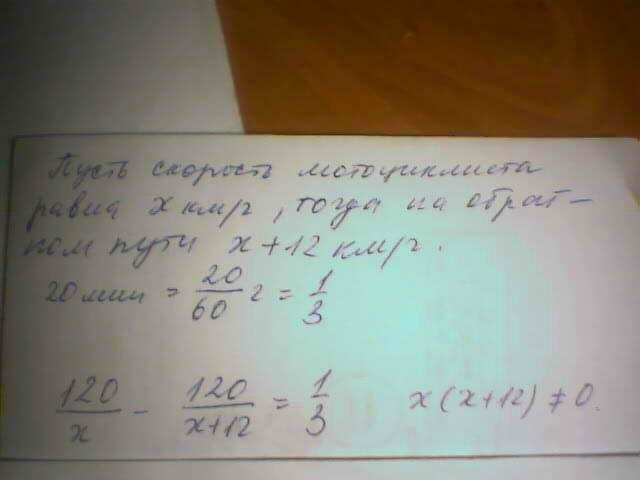 Пусть скорость мотоциклиста
равна x км/г, тогда на обрат-
ном пути x+12 км/г.
20 мин = 20/60 г = 1/3
120/x - 120/(x+12) = 1/3 x(x+12) ≠ 0.